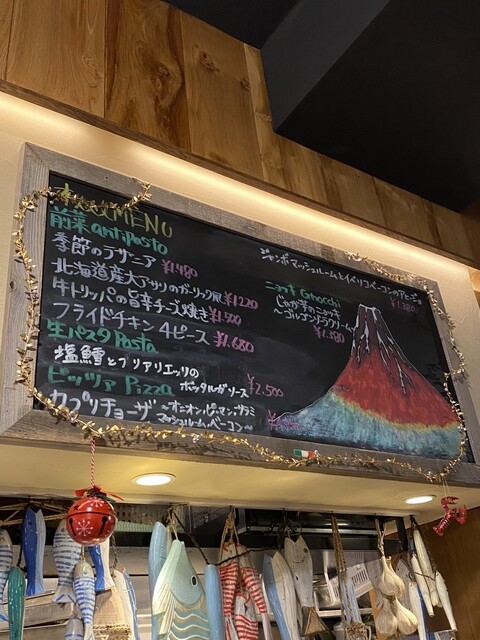 MENU
前菜 antipasto
季節のラザニア ¥1.480
北海道産大アサリのガーリック風 ¥1220
牛トリッパの旨辛チーズ焼き ¥1,500
フライドチキン 4ピース ¥1,680
生パスタ Pasta
塩鱈とフリアリエッリの
ボッタルガソース ¥2.500
ピッツァ Pizza
カプリチョーザ ~オニオン、ピーマン、サラミ
マッシュルーム、ベーコン~
ジャンボマッシュルームとイベリコベーコンのアヒージョ
ニョッキ Gnocchi
じゃが芋のニョッキ
~ゴルゴンゾラクリーム
¥1.380